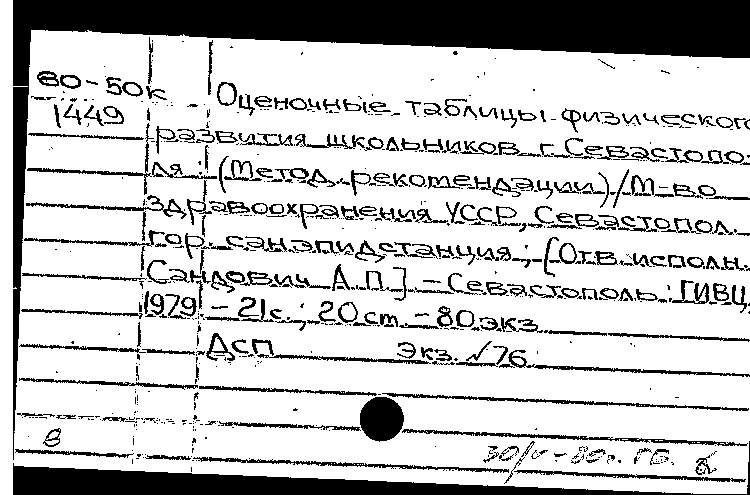 80-50к
1449
Оценочные таблицы физического
развития школьников г. Севастопо-
ля: (Метод. рекомендации)/М-во
здравоохранения УССР, Севастопол.
гор. санэпидстанция; [Отв. исполн.
Сандович А.П.] - Севастополь: ГИВЦ,
1979 - 21с.; 20см. - 80экз
Дсп Экз. №76
8
30/V-80г. ГБ.